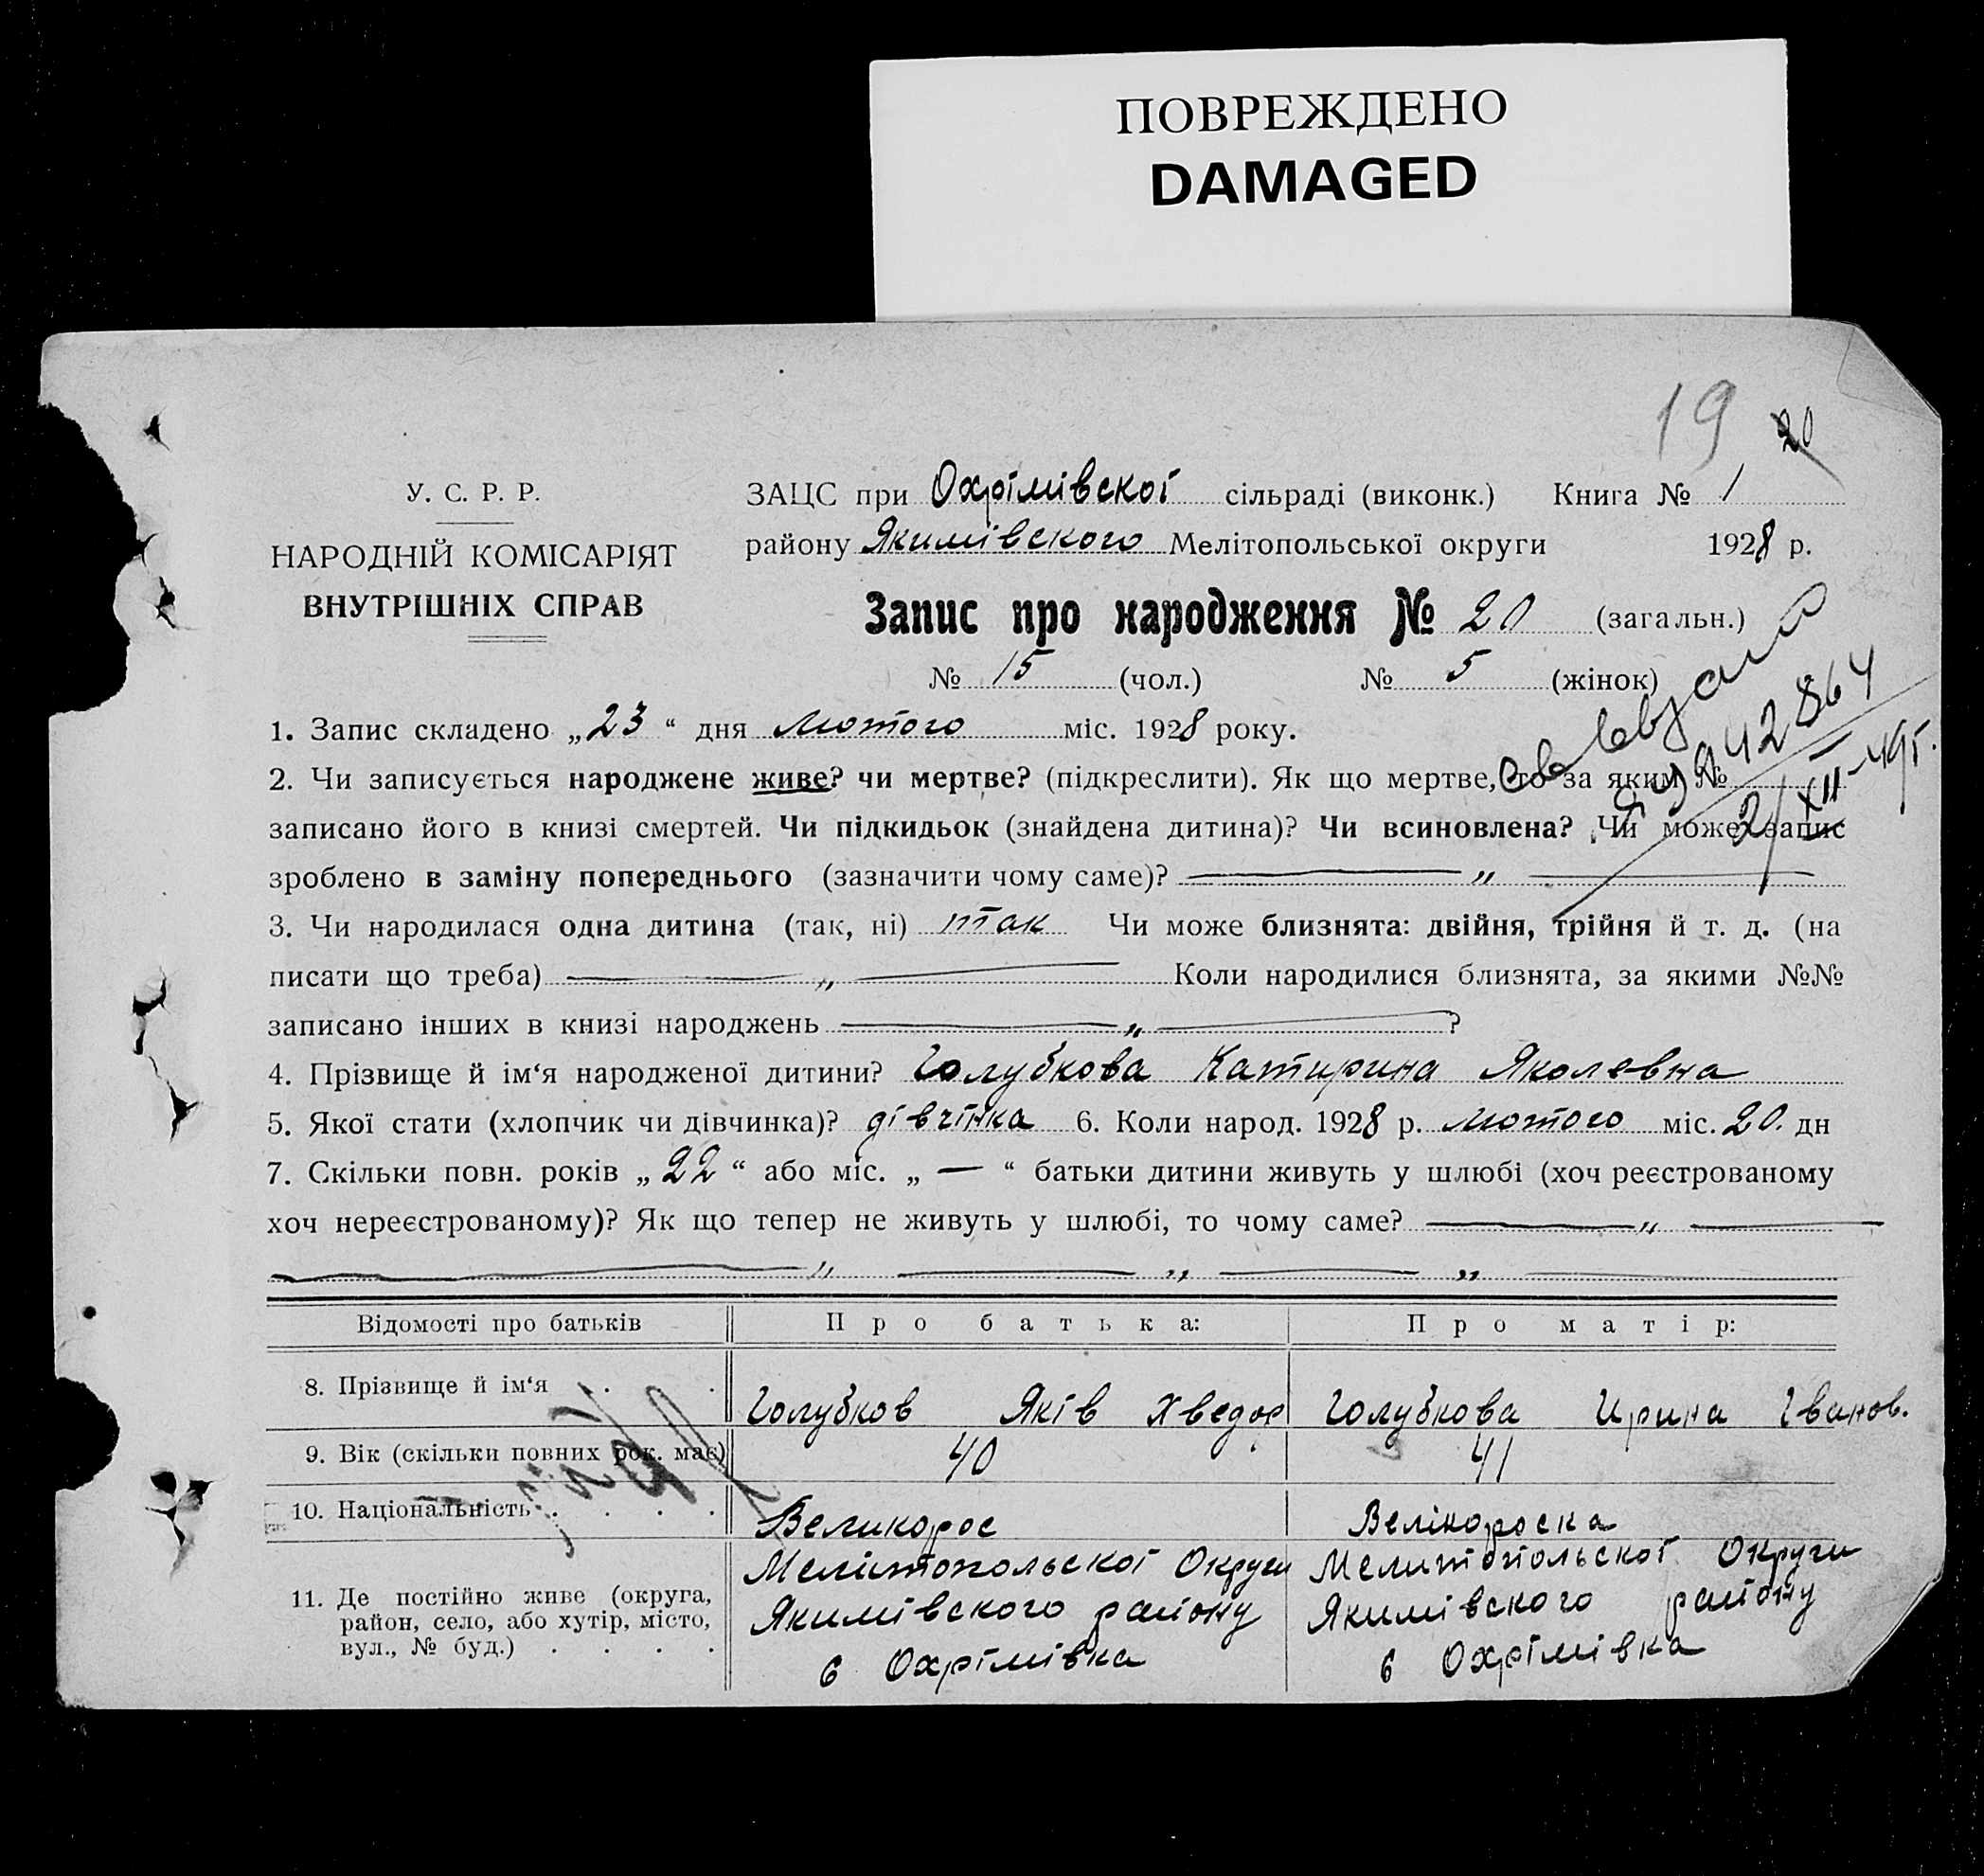 ПОВРЕЖДЕНО
DAMAGED
19 20
У. С. Р. Р.
НАРОДНІЙ КОМІСАРІЯТ
ВНУТРІШНІХ СПРАВ
ЗАЦС при Охрімівскоі сільраді (виконк.) Книга № 1
району Якимівского Мелітопольської округи 1928 р.
Запис про народження № 20 (загальн.)
№ 15 (чол.) № 5 (жінок)
942864
2/XII-49г.
1. Запис складено „23“ дня лютого міс. 1928 року.
2. Чи записується народжене живе? чи мертве? (підкреслити). Як що мертве, то за яким №
записано його в книзі смертей. Чи підкидьок (знайдена дитина)? Чи всиновлена? Чи може запис
зроблено в заміну попереднього (зазначити чому саме)? — „ —
3. Чи народилася одна дитина (так, ні) так Чи може близнята: двійня, трійня й т. д. (на
писати що треба) — „ — Коли народилися близнята, за якими №№
записано інших в книзі народжень — „ — ?
4. Прізвище й ім‘я народженої дитини? Голубкова Катирина Яколевна
5. Якої стати (хлопчик чи дівчинка)? дівчінка 6. Коли народ. 1928 р. лютого міс. 20. дн
7. Скільки повн. років „22“ або міс. „—“ батьки дитини живуть у шлюбі (хоч реєстрованому
хоч нереєстрованому)? Як що тепер не живуть у шлюбі, то чому саме? — „ —
— „ — „ — „ —
Відомості про батьків Про батька: Про матір:
8. Прізвище й ім‘я . . . Голубков Яків Хведор Голубкова Ирина Іванов.
9. Вік (скільки повних рок. має) 40 41
10. Національність . . . . Великорос Велікороска
11. Де постійно живе (округа, район, село, або хутір, місто, вул., № буд.) . . . .
Мелітопольскоі Округи
Якимівского району
с Охрімівка
Мелитопольскоі Округи
Якимівского району
с Охрімівка